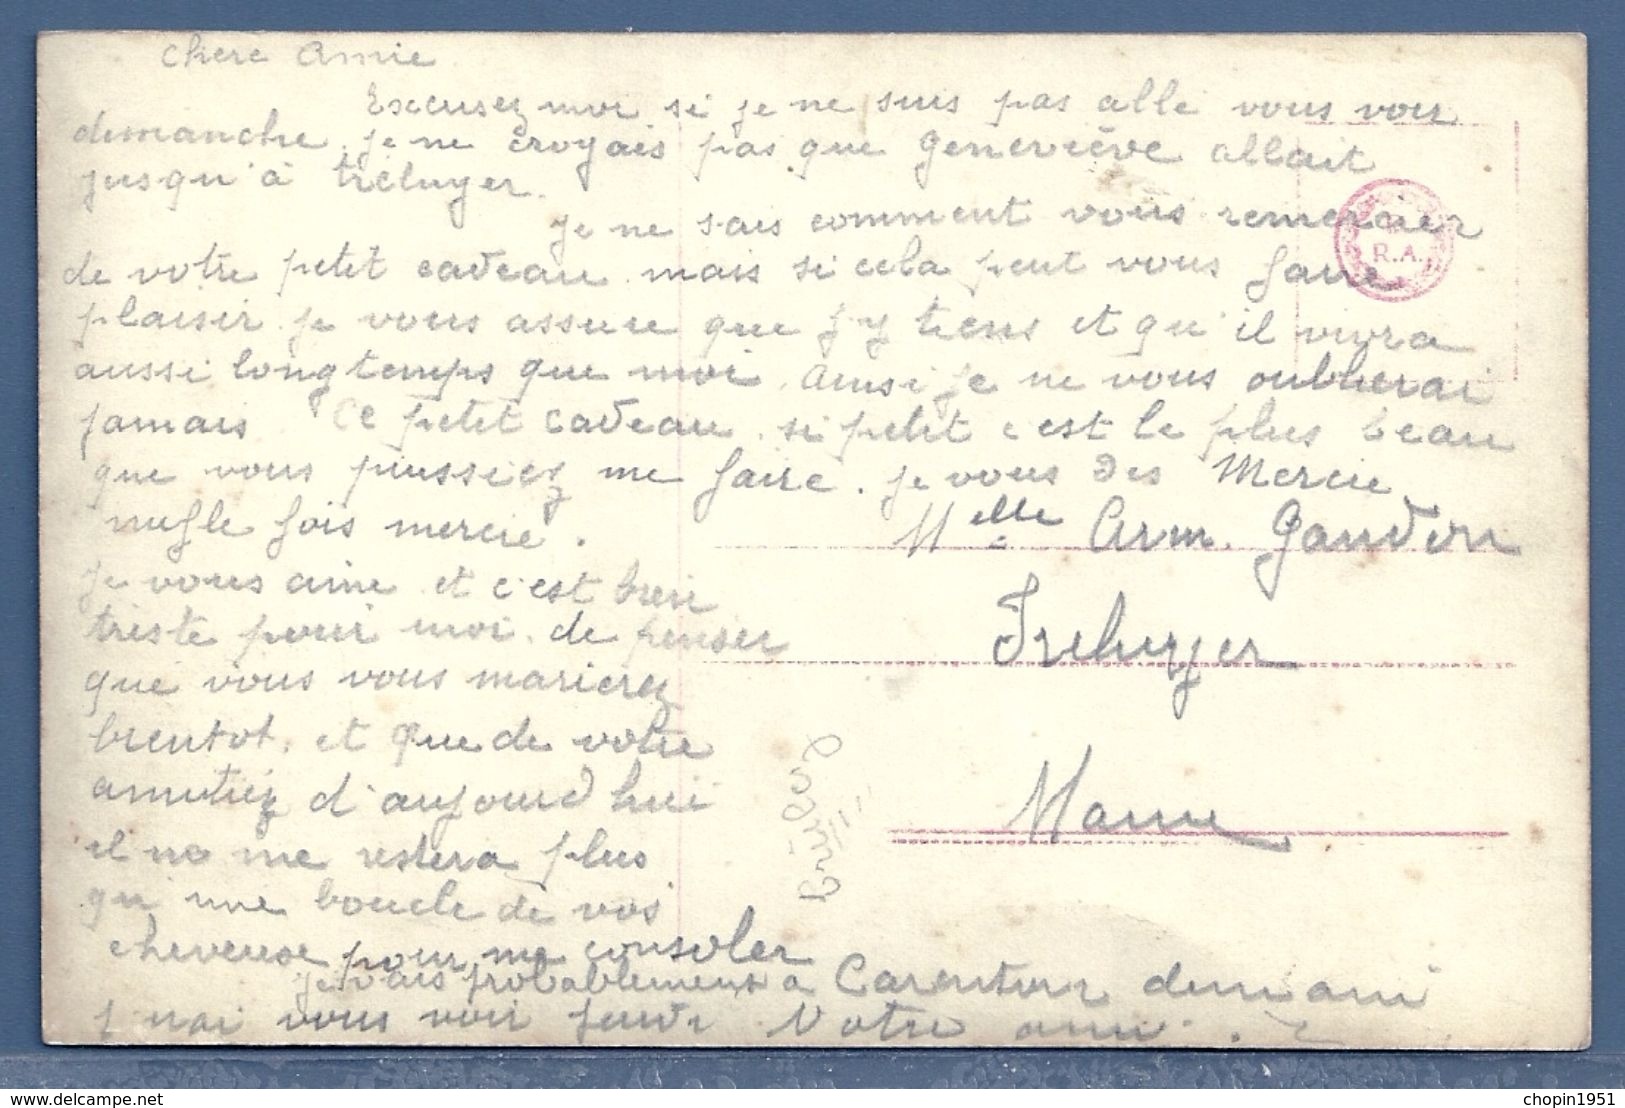 Chere Amie
Excusez moi si je ne suis pas allé vous voir
dimanche. je ne croyais pas que Geneviève allait
jusqu'à Treluyer.
Je ne sais comment vous remercier
de votre petit cadeau mais si cela peut vous faire
plaisir je vous assure que j'y tiens et qu'il vivra
aussi longtemps que moi. ainsi je ne vous oublierai
jamais. Ce petit cadeau si petit c'est le plus beau
que vous puissiez me faire. je vous dis Mercie
mille fois mercie.
je vous aime et c'est bien
triste pour moi de penser
que vous vous marierez
bientot, et que de votre
amitiéz d'aujourd'hui
il ne me restera plus
qu'une boucle de vos
cheveuse pour me consoler
je vais probablement a Carenton demain
j'irai vous voir jeudi Votre ami. ?
Melle Arm. Gaudin
Treluyer
Marne
R.A.
chopin1951